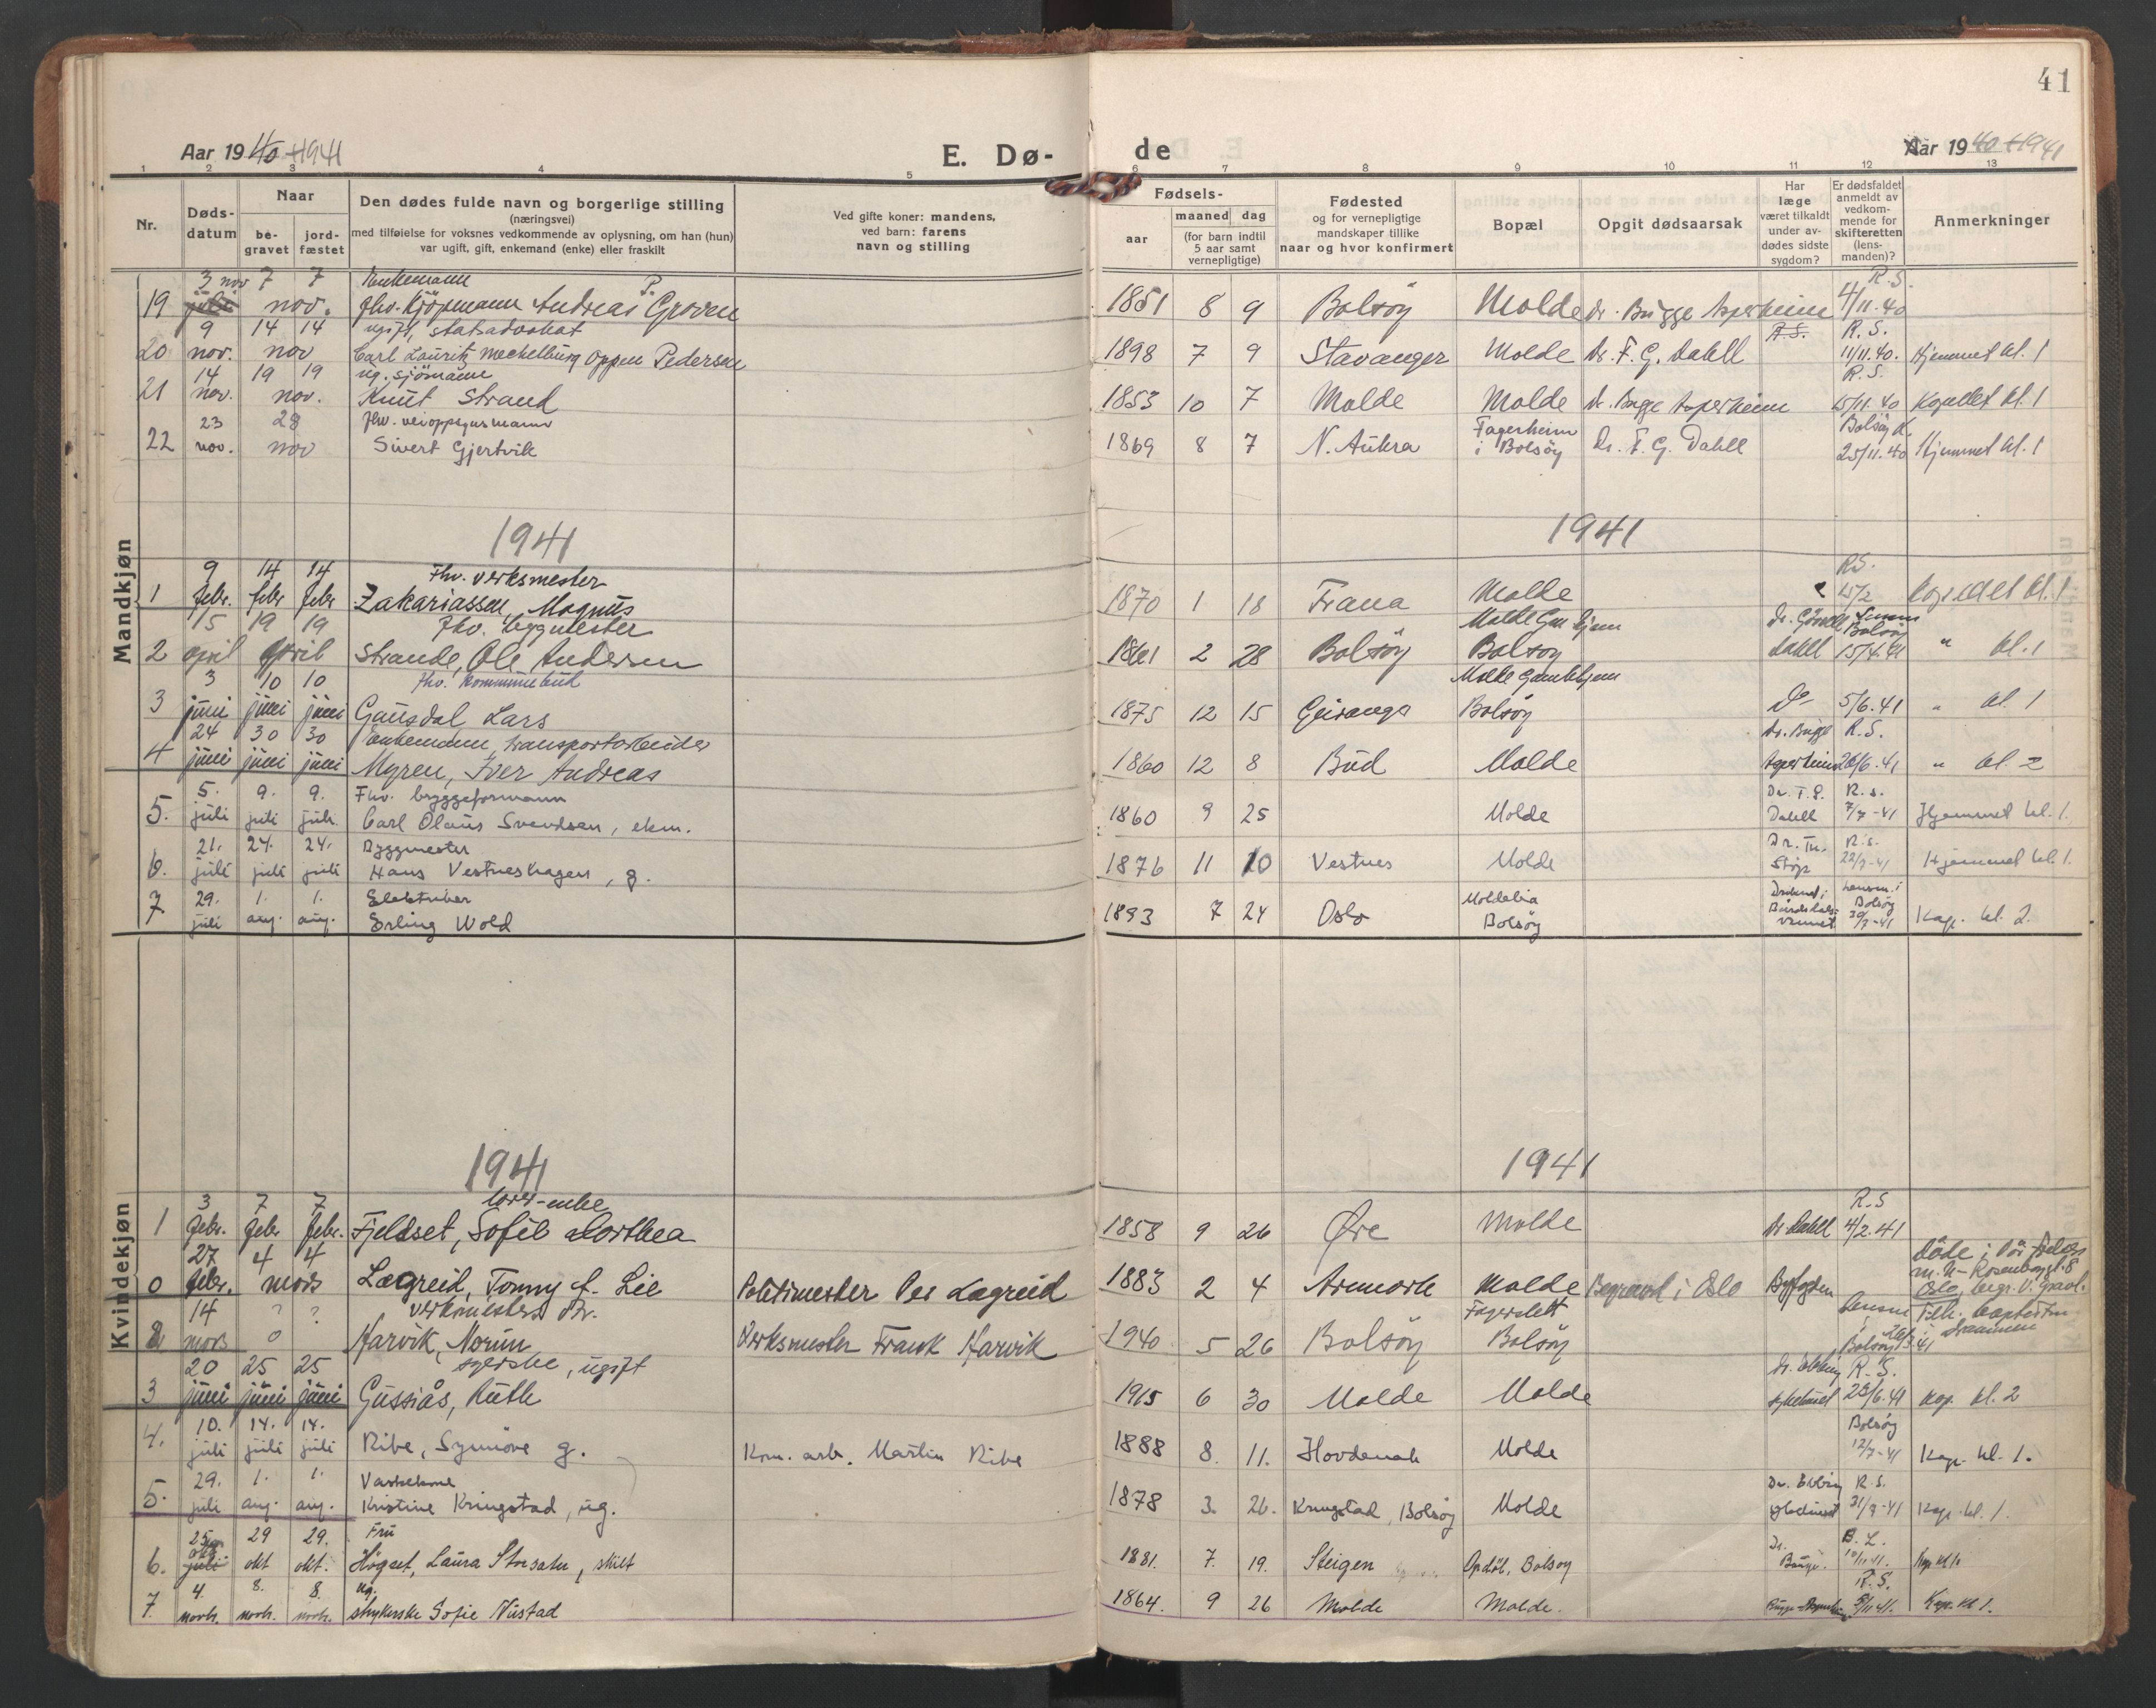 41
Aar 1940 + 1941
E. Dø-
de
Aar 1940 + 1941
1 2 3 4 5 6 7 8 9 10 11 12 13
Nr.
Døds-
datum
Naar
be-
gravet
jord-
fæstet
Den dødes fulde navn og borgerlige stilling
(næringsvei)
med tilføielse for voksnes vedkommende av oplysning, om han (hun)
var ugift, gift, enkemand (enke) eller fraskilt
Ved gifte koner: mandens,
ved barn: farens
navn og stilling
Fødsels-
aar
maaned dag
(for barn indtil
5 aar samt
vernepligtige)
Fødested
og for vernepligtige
mandskaper tillike
naar og hvor konfirmert
Bopæl
Opgit dødsaarsak
Har
læge
været tilkaldt
under av-
dødes sidste
sygdom?
Er dødsfaldet
anmeldt av
vedkom-
mende for
skifteretten
(lens-
manden)?
Anmerkninger
Mandkjøn
3 nov 7 7 Enkemann R.S.
19 juli nov. fhv. kjöpmann Andreas P. Groven 1851 8 9 Bolsöy Molde dr. Bugge Asperheim 4/11.40
9 14 14 ugift, statsadvokat R.S. R.S.
20 nov. nov Carl Lauritz Mechelburg Oppen Pedersen 1898 7 9 Stavanger Molde Dr. F. G. Dahll 11/11.40. Hjemmet kl. 1
14 19 19 ug. sjömann R.S.
21 nov. nov. Knut Strand 1853 10 7 Molde Molde dr. Bugge Asperheim 15/11.40 Kapellet kl. 1
23 28 fhv. veioppsynsmann Fagerheim Bolsöy K.
22 nov. nov Sivert Gjertvik 1869 8 7 N. Aukra i Bolsöy Dr. F. G. Dahll 25/11.40 Hjemmet kl. 1
1941 1941
9 14 14 Fhv. verksmester R.S.
1 febr. febr febr Zakariassen, Magnus 1870 1 18 Fræna Molde 15/2 Kapellet kl. 1
15 19 19 fhv. byggmester Molde Gamlehjem
2 april april Strande, Ole Andersen 1861 2 28 Bolsöy Bolsøy Dahll Bolsöy 15/4.41 " kl. 1
3 10 10 fhv. kommunebud Molde Gamlehjem
3 juni juni juni Gausdal Lars 1875 12 15 Geiranger Bolsöy Do 5/6.41 " kl. 1
24 30 30 enkemann, transportarbeider dr. Bugge R.S.
4 juni juni juni Myren, Iver Andreas 1860 12 8 Bud Molde Asperheim 26/6.41 " kl. 2
5. 9. 9. Fhv. bryggeformann Dr. F.G. R.S.
5. juli juli juli. Carl Olaus Svendsen, ekm. 1860 9 25 Molde Dahll 7/7-41 Hjemmet kl. 1.
21. 24. 24. Byggmester Dr. Th. R.S.
6. juli juli juli Hans Vestneshagen, g. 1876 11 10 Vestnes Molde Støp 22/7-41 Hjemmet kl. 1.
29. 1. 1. Elektriker Moldelia Druknet i lensm. i
7. juli aug. aug. Erling Wold 1893 7 24 Oslo Bolsöy Bolsöy 30/7-41 Kap. kl. 2.
Kvindekjøn
1941 1941
3 7 7 lærer-enke R.S
1 febr. febr febr. Fjeldset, Sofie Dorthea 1858 9 26 Øre Molde Dr Dahll 4/2.41
27 4 4
0 febr. mars Lægreid, Tonny f. Lie Politimester Per Lægreid 1883 2 4 Aremark Molde Begravet i Oslo Byfogden Oslo, begr. V. gravl.
14 ? ? verksmesters dtr. Fagerslett
2 mars 0 Harvik, Norun Verksmester Frank Harvik 1940 5 26 Bolsöy Bolsöy Bolsöy 26/3.41
20 25 25 syerske, ugift R.S.
3 juni juni juni Gussiås, Ruth 1915 6 30 Molde Molde sykehuset 23/6.41 Kap. kl. 2
10. 14. 14. Bolsöy
4. juli juli juli Ribe, Synnöve g. Kom. arb. Martin Ribe 1888 8. 11. Hovdenak Molde 12/7-41 Kap. kl. 1.
29. 1. 1. Vaskekone R.S.
5. juli aug. aug. Kristine Kringstad, ug. 1878 3. 26. Kringstad, Bolsöy Molde 31/7-41 Kap. kl. 1.
25 29 29. Fru Dr. B. L.
6. juli okt okt okt. Högset, Laura Storsæter, skilt 1881. 7. 19. Steigen Opdöl, Bolsøy Bugge. Kap. kl. 1.
4. 8. 8 ug. R.S.
7. novbr. novbr. novbr. strykerske Sofie Nustad 1864. 9 26 Molde Molde. Bugge-Asperheim 5/11 41. Kap. kl. 1.